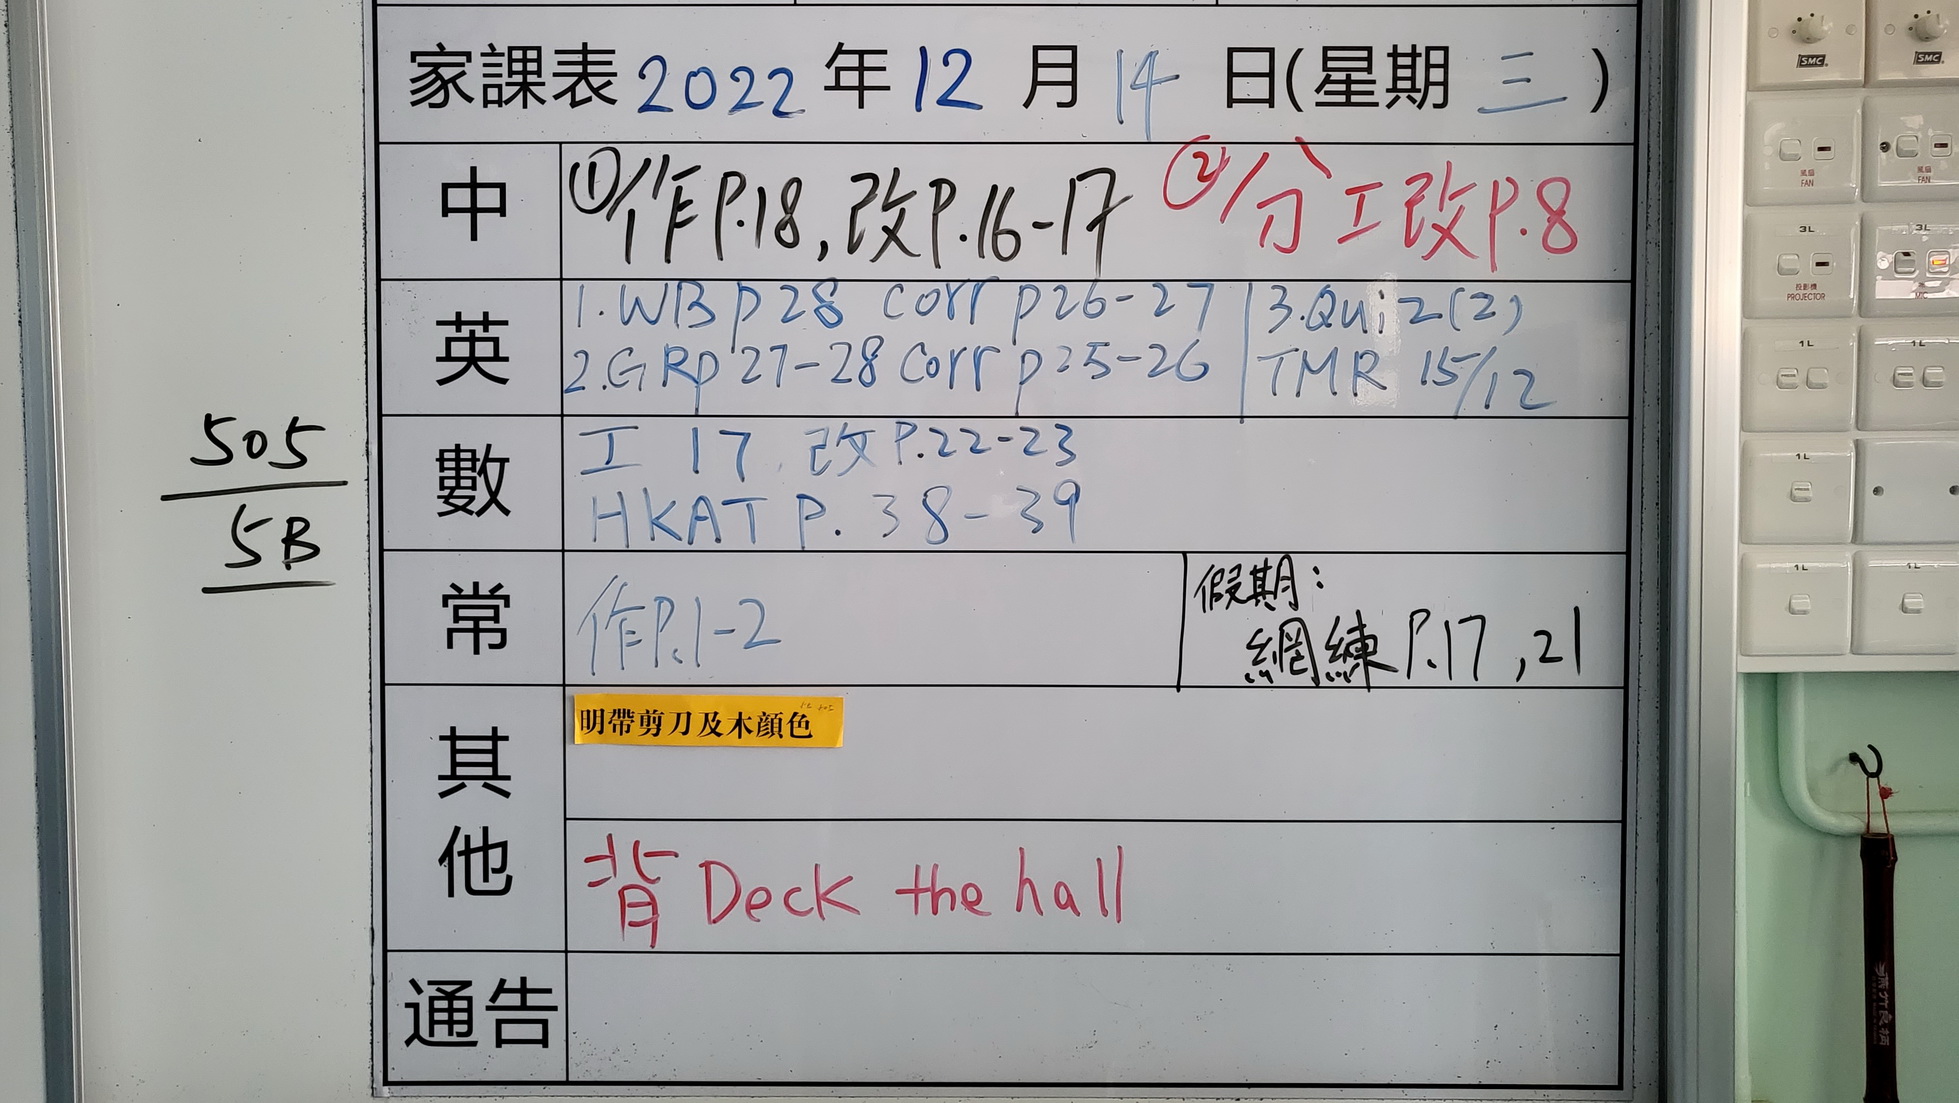 家課表 2022 年 12 月 14 日(星期 三 )
中 ①作P.18,改P.16-17 ②分工改P.8
英 1.WB p28 corr p26-27 3.Quiz(2)
2.GRp27-28 corr p25-26 TMR 15/12
數 工 17 改P.22-23
HKAT P. 38-39
505
5B
常 作P.1-2 假期:
網練P.17,21
其他 明帶剪刀及木顏色
背 Deck the hall
通告
SMC SMC
風扇 FAN 風扇 FAN
3L 3L
投影機 PROJECTOR MIC
1L 1L
1L
1L 1L